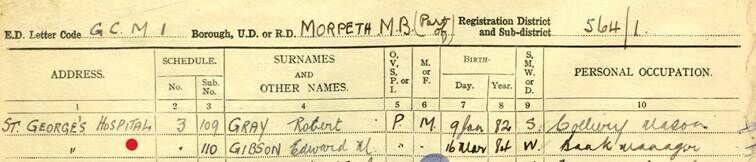 E.D. Letter Code G C M 1 Borough, U.D. or R.D. MORPETH M.B. (Part of) Registration District and Sub-district 564/1.
ADDRESS. SCHEDULE. No. Sub. No. SURNAMES AND OTHER NAMES. O, V, S, P, or I. M. or F. BIRTH— Day. Year. S, M, W, or D. PERSONAL OCCUPATION.
1 2 3 4 5 6 7 8 9 10
ST. GEORGE'S HOSPITAL 3 109 GRAY Robert P. M. 9 Jan 82 S. Colliery Mason
" " 110 GIBSON Edward M. " " 16 Mar 84 W. Bank Manager